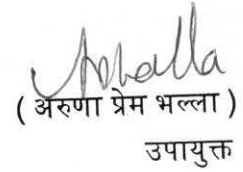 ( अरुणा प्रेम भल्ला )
उपायुक्त